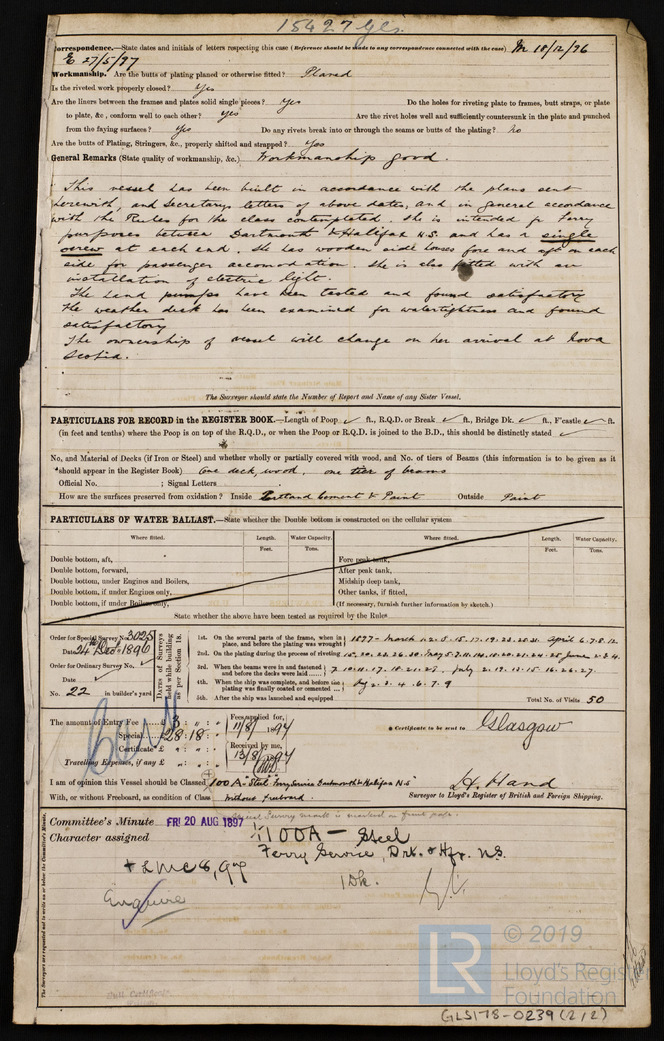 15427 Gls.
Correspondence.—State dates and initials of letters respecting this case (Reference should be made to any correspondence connected with the case) M 10/12/96
E 27/5/97
Workmanship. Are the butts of plating planed or otherwise fitted? Planed
Is the riveted work properly closed? Yes
Are the liners between the frames and plates solid single pieces? Yes Do the holes for riveting plate to frames, butt straps, or plate
to plate, &c., conform well to each other? Yes Are the rivet holes well and sufficiently countersunk in the plate and punched
from the faying surfaces? Yes Do any rivets break into or through the seams or butts of the plating? No
Are the butts of Plating, Stringers, &c., properly shifted and strapped? Yes
General Remarks (State quality of workmanship, &c.) Workmanship good.
This vessel has been built in accordance with the plans sent
herewith, and Secretarys letters of above dates, and in general accordance
with the Rules for the class contemplated. She is intended for Ferry
purposes between Dartmouth & Halifax N.S. and has a single
screw at each end. She has wooden side houses fore and aft on each
side for passenger accomodation. She is also fitted with an
installation of electric light.
The hand pumps have been tested and found satisfactory
The weather deck has been examined for watertightness and found
satisfactory
The ownership of vessel will change on her arrival at Nova
Scotia.
The Surveyor should state the Number of Report and Name of any Sister Vessel.
PARTICULARS FOR RECORD in the REGISTER BOOK.—Length of Poop ft., R.Q.D. or Break ft., Bridge Dk. ft., F'castle ft.
(in feet and tenths) where the Poop is on top of the R.Q.D., or when the Poop or R.Q.D. is joined to the B.D., this should be distinctly stated
No. and Material of Decks (if Iron or Steel) and whether wholly or partially covered with wood, and No. of tiers of Beams (this information is to be given as it
should appear in the Register Book) One deck, wood, one tier of beams
Official No. ; Signal Letters
How are the surfaces preserved from oxidation? Inside Portland Cement & Paint Outside Paint
PARTICULARS OF WATER BALLAST.—State whether the Double bottom is constructed on the cellular system
Where fitted. Length. Water Capacity. Where fitted. Length. Water Capacity.
Feet. Tons. Feet. Tons.
Double bottom, aft, Fore peak tank,
Double bottom, forward, After peak tank,
Double bottom, under Engines and Boilers, Midship deep tank,
Double bottom, if under Engines only, Other tanks, if fitted,
Double bottom, if under Boilers only, (If necessary, furnish further information by sketch.)
State whether the above have been tested as required by the Rules
Order for Special Survey No. 3025
Date 24th Dec 1896
Order for Ordinary Survey No.
Date
No. 22 in builder's yard
DATES of Surveys held while building as per Section 18.
1st. On the several parts of the frame, when in place, and before the plating was wrought 1897- March 1.2.8.15.17.19.23.25.31. April 6.7.8.12
2nd. On the plating during the process of riveting
3rd. When the beams were in and fastened and before the decks were laid
4th. When the ship was complete, and before the plating was finally coated or cemented Aug 2.3.4.6.7.9
5th. After the ship was launched and equipped
Total No. of Visits 50
The amount of Entry Fee £ 3 : " : " Fees applied for, 11/8/1897
Special £ 28 : 18 : " Received by me, 13/8/1897
Certificate £ " : " : "
Travelling Expenses, if any £ " : " : "
Certificate to be sent to Glasgow
I am of opinion this Vessel should be Classed 100A "Steel" Ferry Service Dartmouth & Halifax N.S.
With, or without Freeboard, as condition of Class Without freeboard
H. Hand
Surveyor to Lloyd's Register of British and Foreign Shipping.
Special Survey mark is marked on front page.
Committee's Minute FRI 20 AUG 1897
Character assigned 100A — Steel
Ferry Service, Drt. & Hfx. N.S.
+LMC 8,97
1Dk.
Enquire
The Surveyors are requested not to write on or below the Committee's Minute.
LR © 2019
Lloyd's Register
Foundation
GLS178-0239 (2/2)